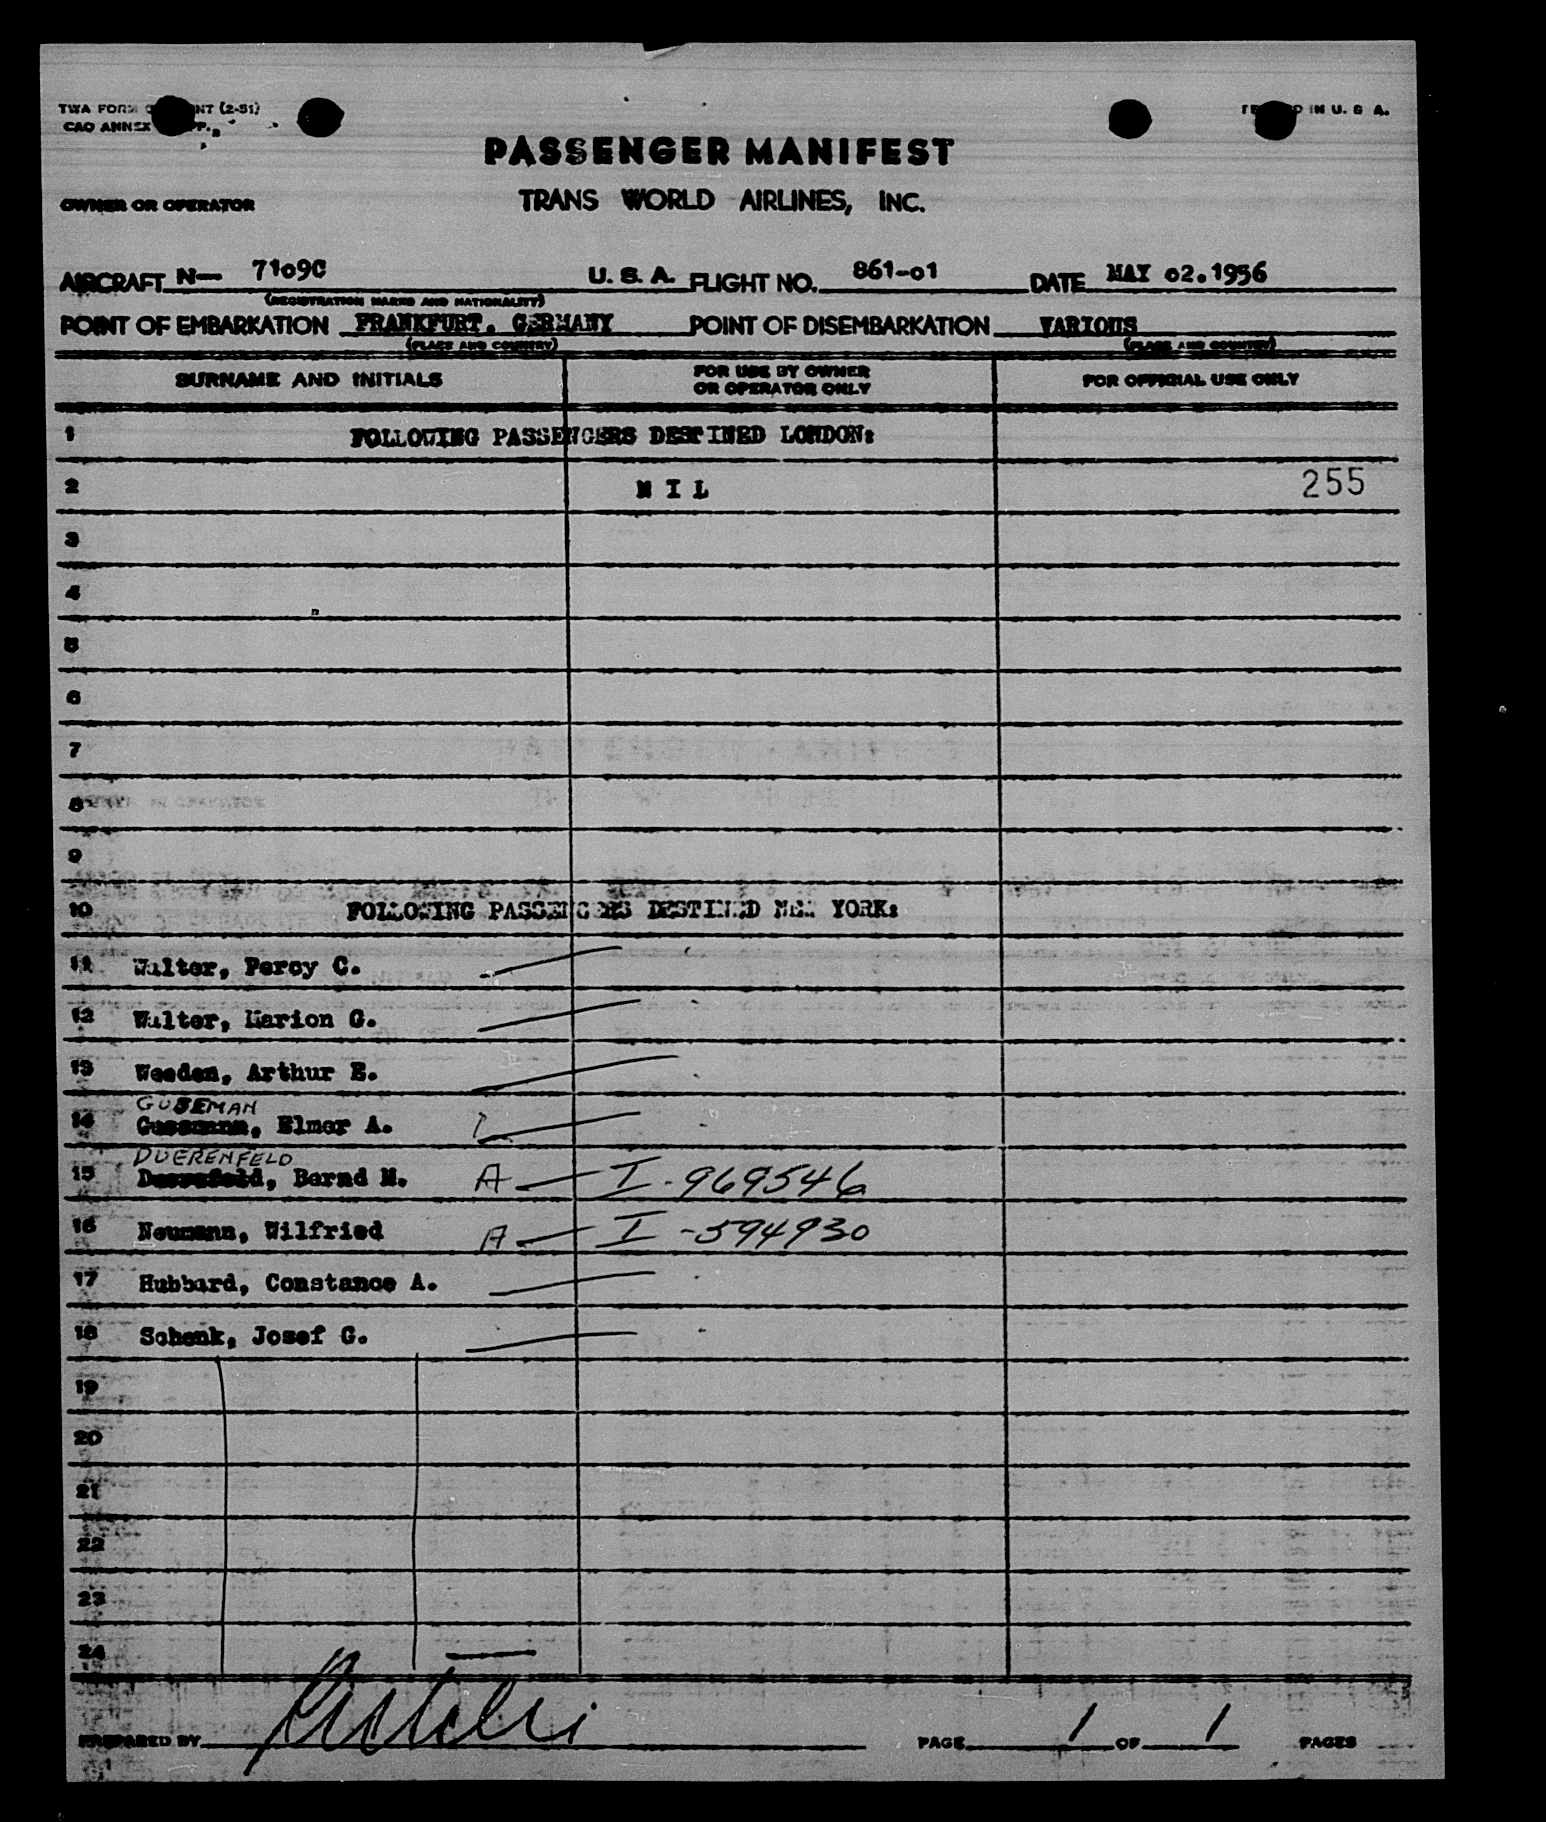 TWA FORM NT (2-51)
CAO ANNEX PP.
IN U. S. A.
PASSENGER MANIFEST
OWNER OR OPERATOR TRANS WORLD AIRLINES, INC.
AIRCRAFT N— 7109C U. S. A. FLIGHT NO. 861-01 DATE MAY 02.1956
(REGISTRATION MARKS AND NATIONALITY)
POINT OF EMBARKATION FRANKFURT. GERMANY POINT OF DISEMBARKATION VARIOUS
(PLACE AND COUNTRY) (PLACE AND COUNTRY)
SURNAME AND INITIALS FOR USE BY OWNER OR OPERATOR ONLY FOR OFFICIAL USE ONLY
1 FOLLOWING PASSENGERS DESTINED LONDON:
2 N I L 255
3
4
5
6
7
8
9
10 FOLLOWING PASSENGERS DESTINED NEW YORK:
11 Walter, Percy C.
12 Walter, Marion G.
13 Weeden, Arthur E.
GUSEMAN
14 Elmer A.
DUERENFELD
15 Bernd M. A — I-969546
16 Neumann, Wilfried A — I-594930
17 Hubbard, Constance A.
18 Schenk, Josef G.
19
20
21
22
23
24
PREPARED BY PAGE 1 OF 1 PAGES